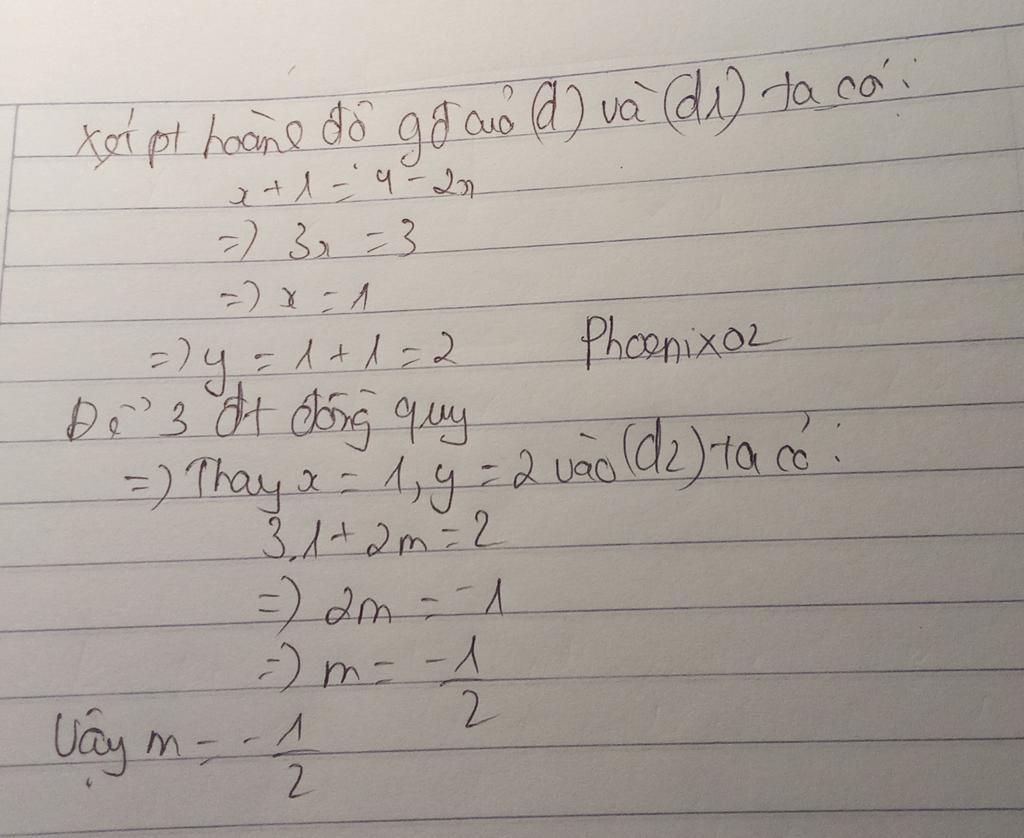 Xét pt hoành độ gđ của (d) và (d1) ta có:
x + 1 = 4 - 2x
=) 3x = 3
=) x = 1
=) y = 1 + 1 = 2
Phoenix02
Để 3 đt đồng quy
=) Thay x = 1, y = 2 vào (d2) ta có:
3.1 + 2m = 2
=) 2m = -1
=) m = -1/2
Vậy m = -1/2